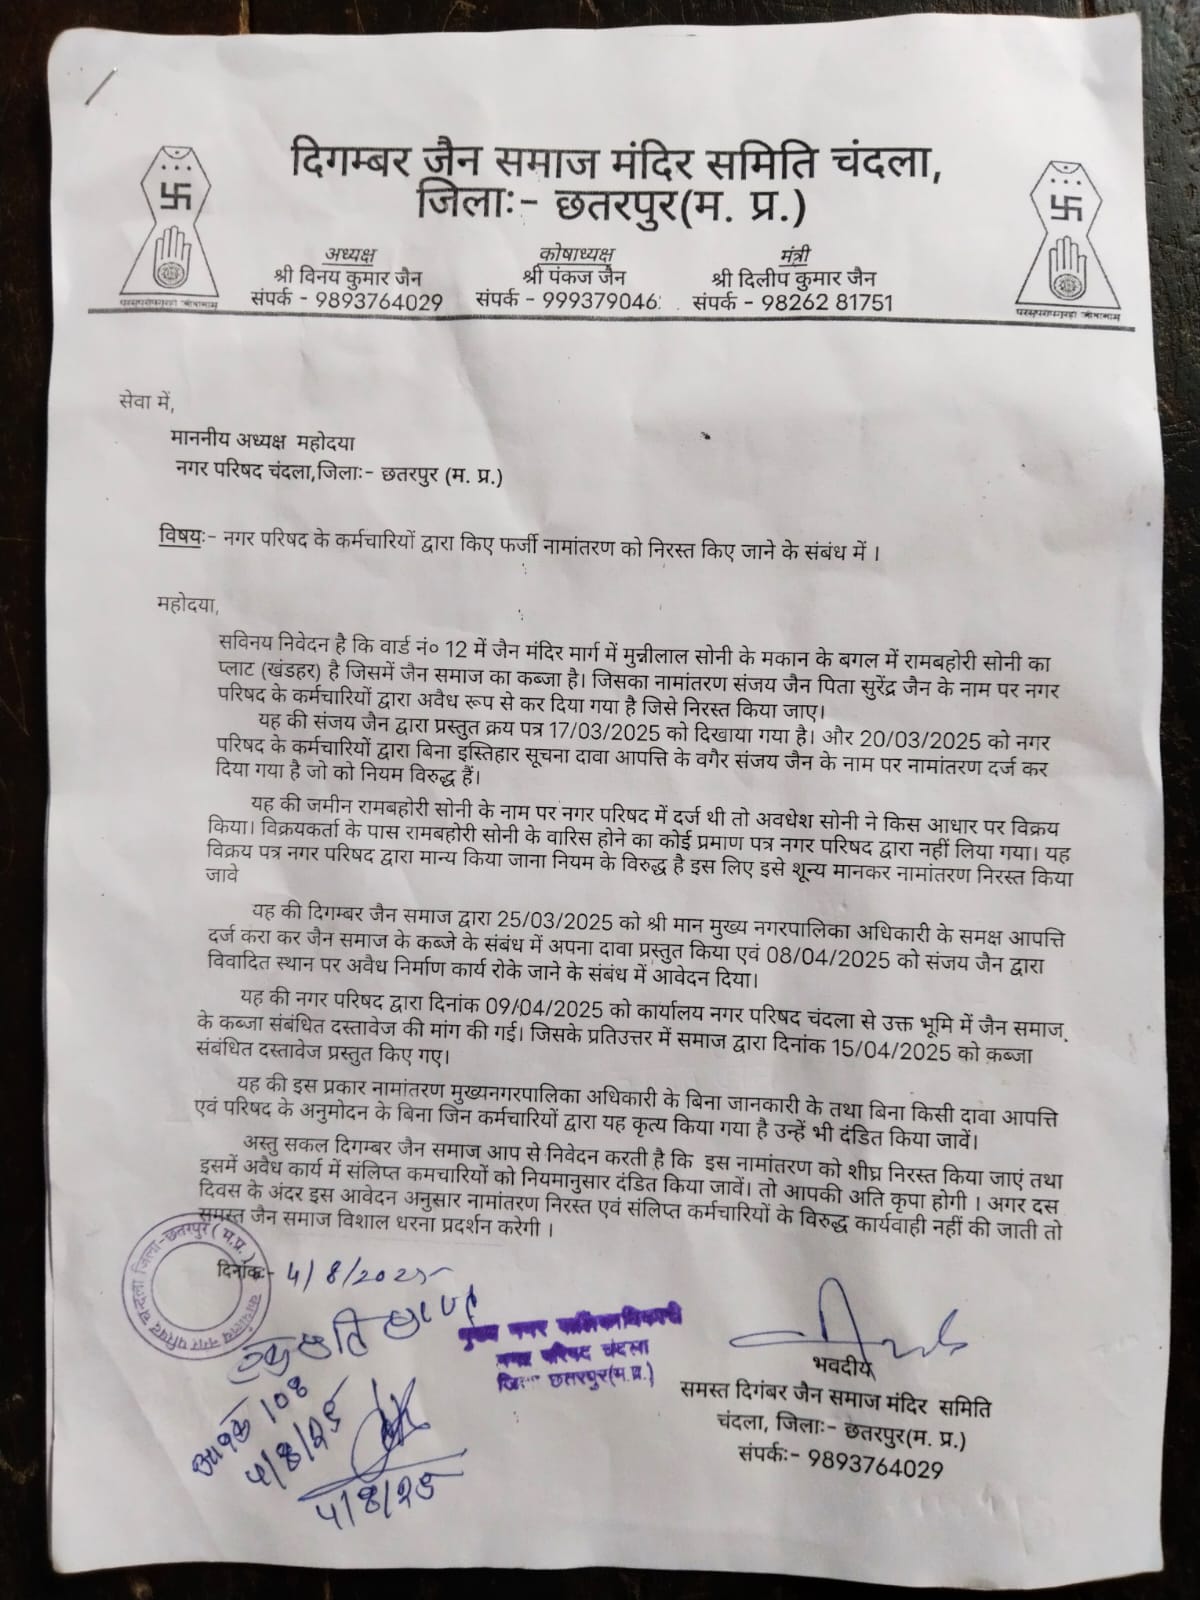 दिगम्बर जैन समाज मंदिर समिति चंदला,
जिलाः- छतरपुर(म. प्र.)
अध्यक्ष
श्री विनय कुमार जैन
संपर्क - 9893764029
कोषाध्यक्ष
श्री पंकज जैन
संपर्क - 999379046
मंत्री
श्री दिलीप कुमार जैन
संपर्क - 98262 81751
सेवा में,
माननीय अध्यक्ष महोदया
नगर परिषद चंदला,जिलाः- छतरपुर (म. प्र.)
विषयः- नगर परिषद के कर्मचारियों द्वारा किए फर्जी नामांतरण को निरस्त किए जाने के संबंध में ।
महोदया,
सविनय निवेदन है कि वार्ड नं० 12 में जैन मंदिर मार्ग में मुन्नीलाल सोनी के मकान के बगल में रामबहोरी सोनी का
प्लाट (खंडहर) है जिसमें जैन समाज का कब्जा है। जिसका नामांतरण संजय जैन पिता सुरेंद्र जैन के नाम पर नगर
परिषद के कर्मचारियों द्वारा अवैध रूप से कर दिया गया है जिसे निरस्त किया जाए।
यह की संजय जैन द्वारा प्रस्तुत क्रय पत्र 17/03/2025 को दिखाया गया है। और 20/03/2025 को नगर
परिषद के कर्मचारियों द्वारा बिना इस्तिहार सूचना दावा आपत्ति के वगैर संजय जैन के नाम पर नामांतरण दर्ज कर
दिया गया है जो को नियम विरुद्ध हैं।
यह की जमीन रामबहोरी सोनी के नाम पर नगर परिषद में दर्ज थी तो अवधेश सोनी ने किस आधार पर विक्रय
किया। विक्रयकर्ता के पास रामबहोरी सोनी के वारिस होने का कोई प्रमाण पत्र नगर परिषद द्वारा नहीं लिया गया। यह
विक्रय पत्र नगर परिषद द्वारा मान्य किया जाना नियम के विरुद्ध है इस लिए इसे शून्य मानकर नामांतरण निरस्त किया
जावे
यह की दिगम्बर जैन समाज द्वारा 25/03/2025 को श्री मान मुख्य नगरपालिका अधिकारी के समक्ष आपत्ति
दर्ज करा कर जैन समाज के कब्जे के संबंध में अपना दावा प्रस्तुत किया एवं 08/04/2025 को संजय जैन द्वारा
विवादित स्थान पर अवैध निर्माण कार्य रोके जाने के संबंध में आवेदन दिया।
यह की नगर परिषद द्वारा दिनांक 09/04/2025 को कार्यालय नगर परिषद चंदला से उक्त भूमि में जैन समाज
के कब्जा संबंधित दस्तावेज की मांग की गई। जिसके प्रतिउत्तर में समाज द्वारा दिनांक 15/04/2025 को कब्जा
संबंधित दस्तावेज प्रस्तुत किए गए।
यह की इस प्रकार नामांतरण मुख्यनगरपालिका अधिकारी के बिना जानकारी के तथा बिना किसी दावा आपत्ति
एवं परिषद के अनुमोदन के बिना जिन कर्मचारियों द्वारा यह कृत्य किया गया है उन्हें भी दंडित किया जावें।
अस्तु सकल दिगम्बर जैन समाज आप से निवेदन करती है कि इस नामांतरण को शीघ्र निरस्त किया जाएं तथा
इसमें अवैध कार्य में संलिप्त कमचारियों को नियमानुसार दंडित किया जावें। तो आपकी अति कृपा होगी । अगर दस
दिवस के अंदर इस आवेदन अनुसार नामांतरण निरस्त एवं संलिप्त कर्मचारियों के विरुद्ध कार्यवाही नहीं की जाती तो
समस्त जैन समाज विशाल धरना प्रदर्शन करेगी ।
दिनांकः- 4/8/2025
कार्यालय नगर परिषद चन्दला जिला-छतरपुर (म.प्र.)
आवक 108
4/8/25
4/8/25
मुख्य नगर पालिका अधिकारी
नगर परिषद चंदला
छतरपुर(म.प्र.)
भवदीय
समस्त दिगंबर जैन समाज मंदिर समिति
चंदला, जिलाः- छतरपुर(म. प्र.)
संपर्कः- 9893764029